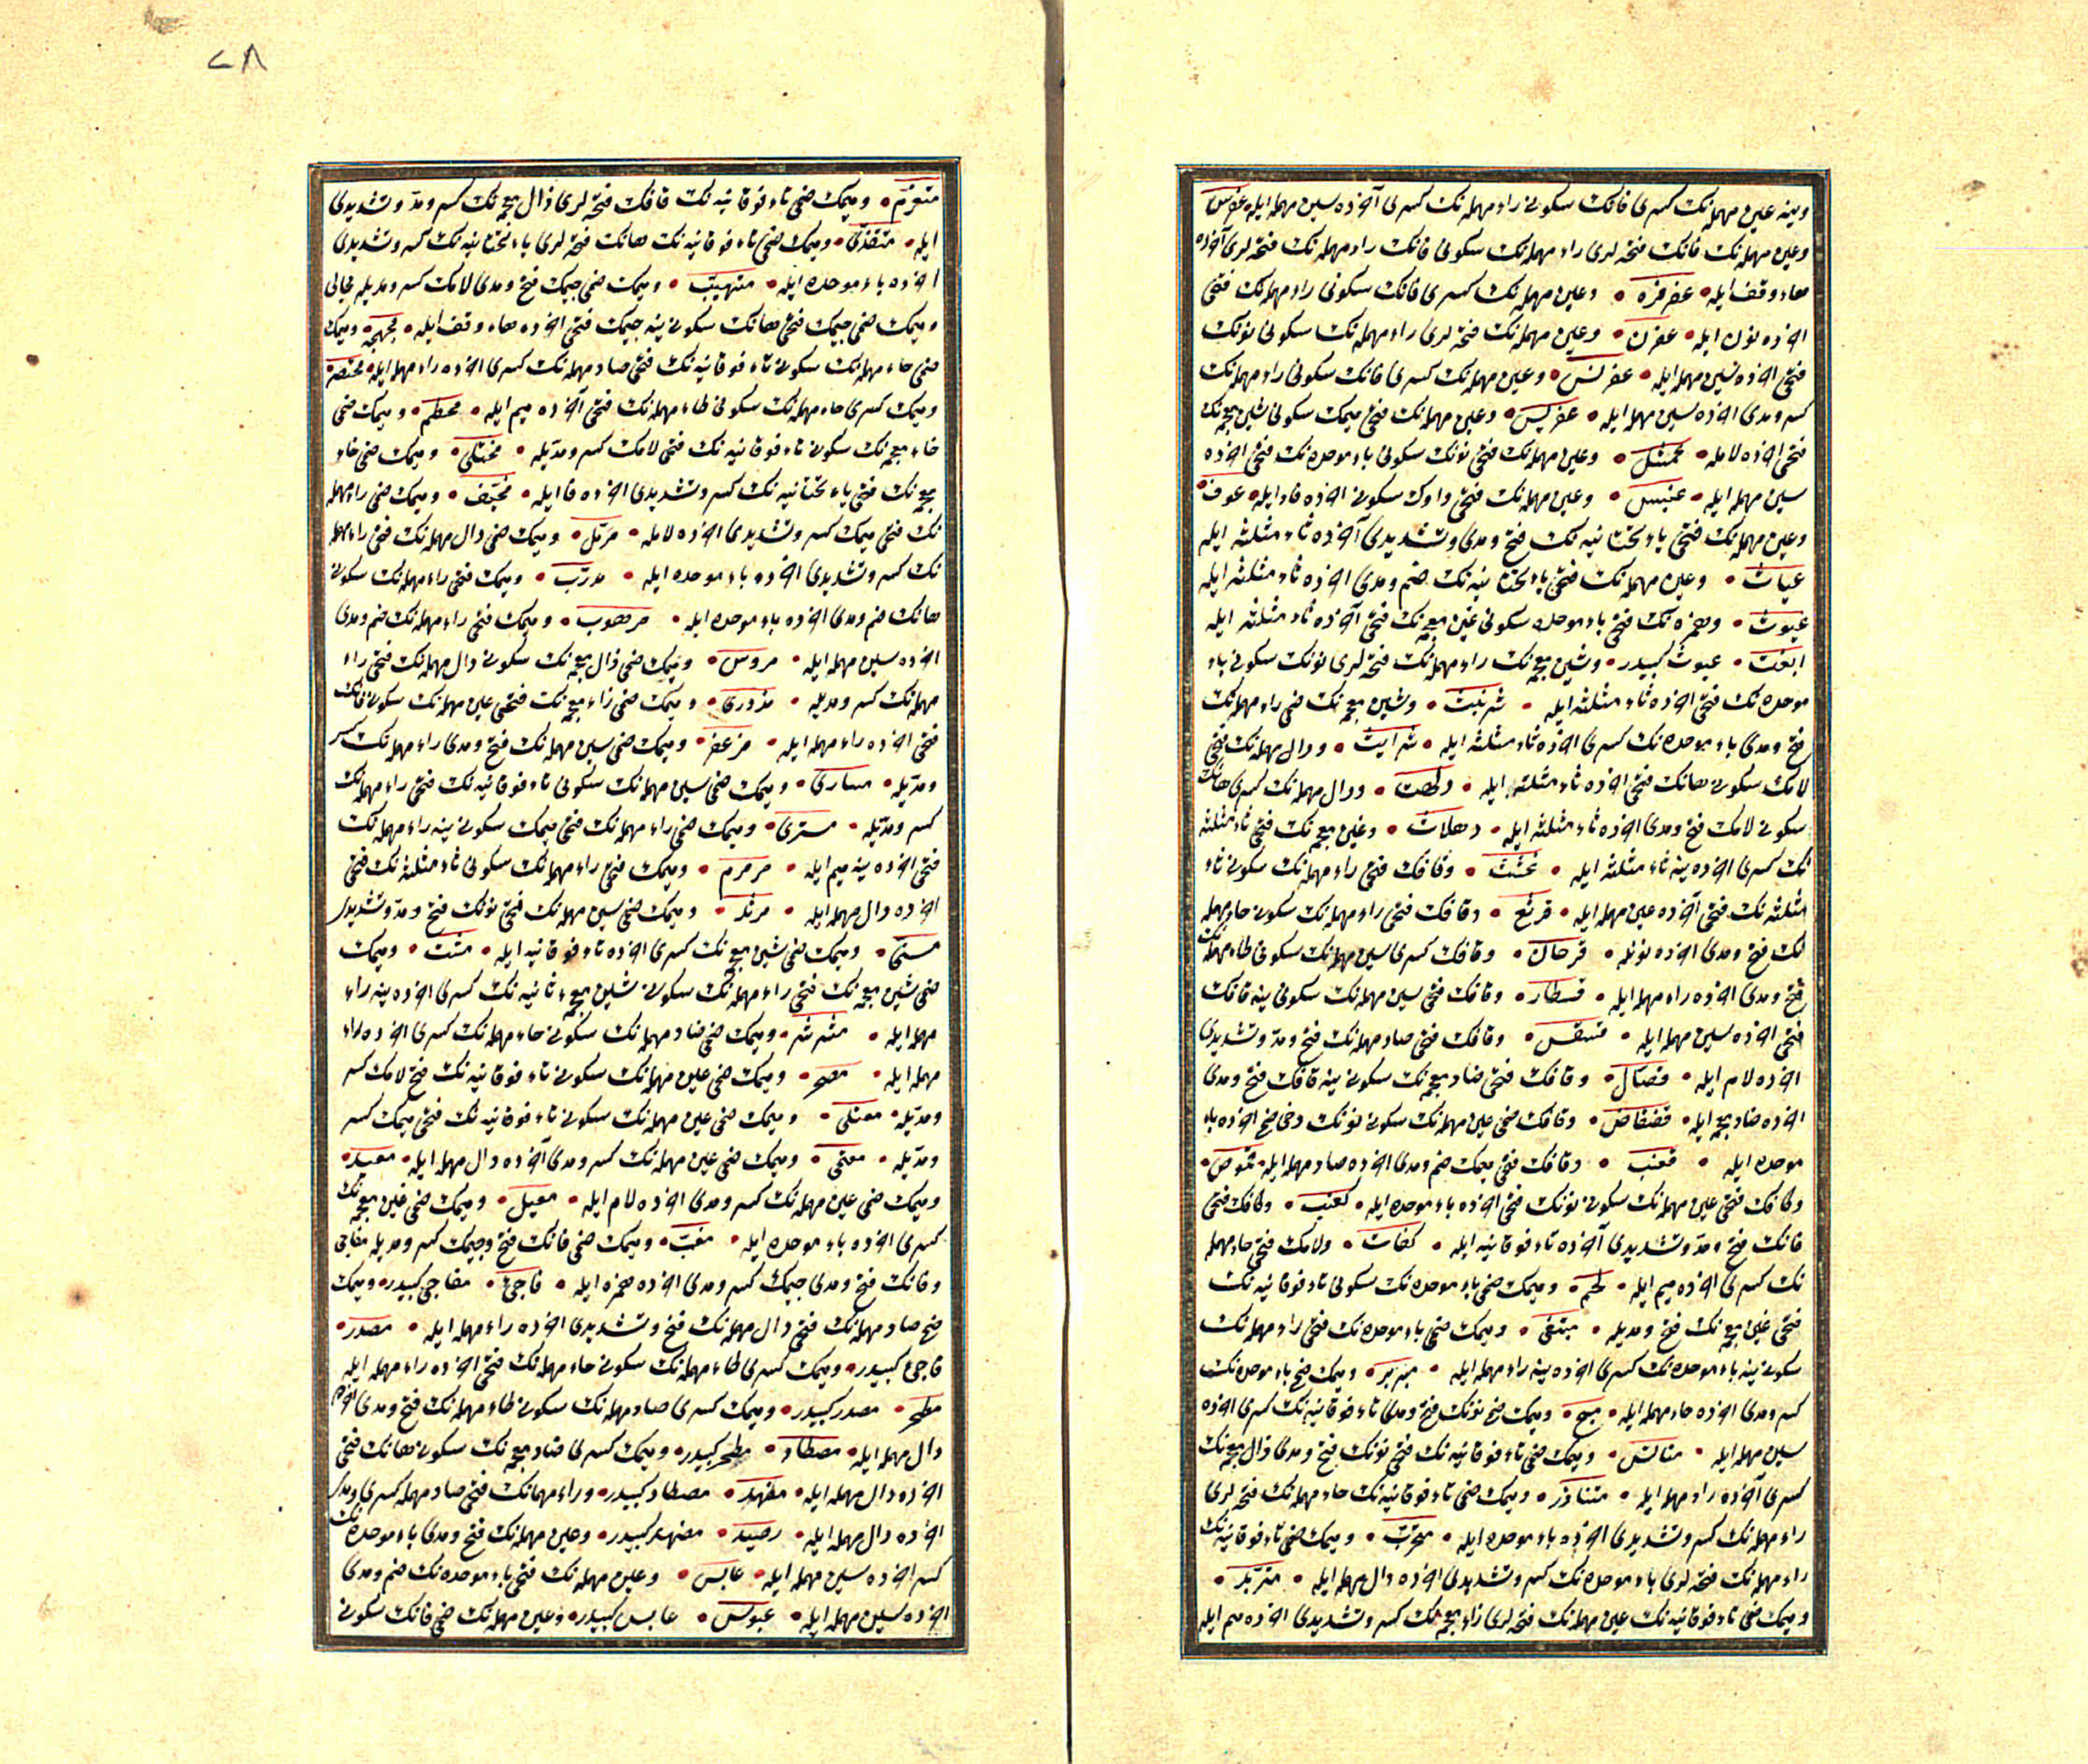 وینه عین مهمله‌نك كسری فانك سكونی راء مهمله‌نك كسری آخرده سین مهمله ایله عفرس
وعین مهمله‌نك فانك فتحه‌لری راء مهمله‌نك سكونی فانك راء مهمله‌نك فتحه‌لری آخرده
هاء وقف ایله • عفرفره • وعین مهمله‌نك كسری فانك سكونی راء مهمله‌نك فتحی
اخرده نون ایله • عفرن • وعین مهمله‌نك فتحه‌لری راء مهمله‌نك سكونی نونك
فتحی اخرده سین مهمله ایله • عفرنس • وعین مهمله‌نك كسری فانك سكونی راء مهمله‌نك
كسر ومدی اخرده سین مهمله ایله • عفریس • وعین مهمله‌نك فتحی میمك سكونی شین معجمه‌نك
فتحی اخرده لامله • عمشل • وعین مهمله‌نك فتحی نونك سكونی باء موحده‌نك فتحی اخرده
سین مهمله ایله • عنبس • وعین مهمله‌نك فتحی واوك سكونی اخرده فاء ایله • عوف •
وعین مهمله‌نك فتحی یاء تحتانیه‌نك فتح ومدی وتشدیدی آخرده ثاء مثلثه ایله
عیاث • وعین مهمله‌نك فتحی یاء تحتانیه‌نك ضم ومدی اخرده ثاء مثلثه ایله
عیوث • وهمزه‌نك فتحی باء موحده سكونی غین معجمه‌نك فتحی آخرده ثاء مثلثه ایله
ابغث • عیوث كبیدر • وشین معجمه‌نك راء مهمله‌نك فتحه‌لری نونك سكونی باء
موحده‌نك فتحی اخرده ثاء مثلثه ایله • شرنبث • وشین معجمه‌نك ضمی راء مهمله‌نك
فتح ومدی باء موحده‌نك كسری اخرده ثاء مثلثه ایله • شرابث • ودال مهمله‌نك فتحی
لامك سكونی هانك فتحی اخرده ثاء مثلثه ایله • دلهث • ودال مهمله‌نك كسری هانك
سكونی لامك فتح ومدی اخرده ثاء مثلثه ایله • دهلاث • وغین معجمه‌نك فتحی ثاء مثلثه
نك كسری اخرده ینه ثاء مثلثه ایله • غثث • وقافك فتحی راء مهمله‌نك سكونی ثاء
مثلثه‌نك فتحی آخرده عین مهمله ایله • قرثع • وقافك فتحی راء مهمله‌نك سكونی حاء مهمله
نك فتح ومدی اخرده نونله • قرحان • وقافك كسری سین مهمله‌نك سكونی طاء مهمله‌نك
فتح ومدی اخرده راء مهمله ایله • قسطار • وقافك فتحی سین مهمله‌نك سكونی ینه قافك
فتحی اخرده سین مهمله ایله • قسقس • وقافك فتحی صاد مهمله‌نك فتح ومد وتشدیدی
اخرده لام ایله • قصّال • وقافك فتحی ضاد معجمه‌نك سكونی ینه قافك فتح ومدی
اخرده ضاد معجمه ایله • قضقاض • وقافك ضمی عین مهمله‌نك سكونی نونك دخی ضمی اخرده باء
موحده ایله • قعنب • وقافك فتحی میمك ضم ومدی اخرده صاد مهمله ایله • قموص •
وكافك فتحی عین مهمله‌نك سكونی نونك فتحی اخرده باء موحده ایله • كعنب • وكافك فتحی
فانك فتح ومد وتشدیدی آخرده تاء فوقانیه ایله • كفات • ولامك فتحی حاء مهمله
نك كسری اخرده میم ایله • لحم • ومیمك ضمی باء موحده‌نك سكونی تاء فوقانیه‌نك
فتحی غین معجمه‌نك فتح ومدیله • مبتغی • ومیمك ضمی باء موحده‌نك فتحی راء مهمله‌نك
سكونی ینه باء موحده‌نك كسری اخرده ینه راء مهمله ایله • مبربر • ومیمك ضمی باء موحده‌نك
كسر ومدی اخرده حاء مهمله ایله • مبیح • ومیمك ضمی نونك فتح ومدی تاء فوقانیه‌نك كسری اخرده
سین مهمله ایله • مناتس • ومیمك ضمی تاء فوقانیه‌نك فتحی نونك فتح ومدی ذال معجمه‌نك
كسری آخرده راء مهمله ایله • متناذر • ومیمك ضمی تاء فوقانیه‌نك حاء مهمله‌نك فتحه‌لری
راء مهمله‌نك كسر وتشدیدی اخرده باء موحده ایله • متحرب • ومیمك ضمی تاء فوقانیه‌نك
راء مهمله‌نك فتحه‌لری باء موحده‌نك كسر وتشدیدی اخرده دال مهمله ایله • متربد •
ومیمك ضمی تاء فوقانیه‌نك عین مهمله‌نك فتحه‌لری زاء معجمه‌نك كسر وتشدیدی اخرده میم ایله
٢٨
متعزم • ومیمك ضمی تاء فوقانیه‌نك قافك فتحه‌لری ذال معجمه‌نك كسر ومد وتشدیدی
ایله • متقذّی • ومیمك ضمی تاء فوقانیه‌نك هانك فتحه‌لری یاء تحتانیه‌نك كسر وتشدیدی
اخرده باء موحده ایله • متهیب • ومیمك ضمی جیمك فتح ومدی لامك كسر ومدیله مجالی
ومیمك ضمی جیمك فتحی هانك سكونی ینه جیمك فتحی اخرده هاء وقف ایله • مجهجه • ومیمك
ضمی حاء مهمله‌نك سكونی تاء فوقانیه‌نك فتحی صاد مهمله‌نك كسری اخرده راء مهمله ایله • محتصر •
ومیمك كسری حاء مهمله‌نك سكونی طاء مهمله‌نك فتحی آخرده میم ایله • محطم • ومیمك ضمی
خاء معجمه‌نك سكونی تاء فوقانیه‌نك فتحی لامك كسر ومدیله • مختلی • ومیمك ضمی خاء
معجمه‌نك فتحی یاء تحتانیه‌نك كسر وتشدیدی اخرده فا ایله • مخیّف • ومیمك ضمی راء مهمله
نك فتحی میمك كسر وتشدیدی اخرده لامله • مرمّل • ومیمك ضمی دال مهمله‌نك فتحی راء مهمله
نك كسر وتشدیدی اخرده باء موحده ایله • مدرّب • ومیمك فتحی راء مهمله‌نك سكونی
هانك ضم ومدی اخرده باء موحده ایله • مرهوب • ومیمك فتحی راء مهمله‌نك ضم ومدی
اخرده سین مهمله ایله • مروس • ومیمك ضمی ذال معجمه‌نك سكونی دال مهمله‌نك فتحی راء
مهمله‌نك كسر ومدیله • مذدری • ومیمك ضمی زاء معجمه‌نك فتحی عین مهمله‌نك سكونی فانك
فتحی اخرده راء مهمله ایله • مزعفر • ومیمك ضمی سین مهمله‌نك فتح ومدی راء مهمله‌نك كسر
ومدیله • مساری • ومیمك ضمی سین مهمله‌نك سكونی تاء فوقانیه‌نك فتحی راء مهمله‌نك
كسر ومدیله • مستری • ومیمك ضمی راء مهمله‌نك فتحی میمك سكونی ینه راء مهمله‌نك
فتحی اخرده ینه میم ایله • مرمرم • ومیمك فتحی راء مهمله‌نك سكونی ثاء مثلثه‌نك فتحی
اخرده دال مهمله ایله • مرثد • ومیمك ضمی سین مهمله‌نك فتحی نونك فتح ومد وتشدیدی
مسنّی • ومیمك ضمی شین معجمه‌نك كسری اخرده تاء فوقانیه ایله • مشت • ومیمك
ضمی شین معجمه‌نك فتحی راء مهمله‌نك سكونی شین معجمهء ثانیه‌نك كسری اخرده ینه راء
مهمله ایله • مشرشر • ومیمك ضمی ضاد مهمله‌نك سكونی حاء مهمله‌نك كسری اخرده راء
مهمله ایله • مصحر • ومیمك ضمی عین مهمله‌نك سكونی تاء فوقانیه‌نك فتح لامك كسر
ومدیله • معتلی • ومیمك ضمی عین مهمله‌نك سكونی تاء فوقانیه‌نك فتحی میمك كسر
ومدیله • معتمی • ومیمك ضمی عین مهمله‌نك كسر ومدی آخرده دال مهمله ایله • معید •
ومیمك ضمی عین مهمله‌نك كسر ومدی اخرده لام ایله • معیل • ومیمك ضمی غین معجمه‌نك
كسری اخرده باء موحده ایله • مغبّ • ومیمك ضمی فانك فتح وجیمك كسر ومدیله مفاجی
وفانك فتح ومدی جیمك كسر ومدی اخرده همزه ایله • فاجئ • مفاجی كبیدر • ومیمك
ضمی صاد مهمله‌نك فتحی دال مهمله‌نك فتح وتشدیدی اخرده راء مهمله ایله • مصدر •
فاجئ كبیدر • ومیمك كسری طاء مهمله‌نك سكونی حاء مهمله‌نك فتحی اخرده راء مهمله ایله
مطحر • مصدر كبیدر • ومیمك كسری صاد مهمله‌نك سكونی طاء مهمله‌نك فتح ومدی اخرده
دال مهمله ایله • مصطاد • مطحر كبیدر • ومیمك كسری ضاد معجمه‌نك سكونی هانك فتحی
اخرده دال مهمله ایله • مضهد • مصطاد كبیدر • وراء مهمله‌نك فتحی صاد مهمله كسری ومدی
اخرده دال مهمله ایله • رصید • مضهد كبیدر • وعین مهمله‌نك فتح ومدی باء موحده‌نك
كسر اخرده سین مهمله ایله • عابس • وعین مهمله‌نك فتحی باء موحده‌نك ضم ومدی
اخرده سین مهمله ایله • عبوس • عابس كبیدر • وعین مهمله‌نك ضمی فانك سكونی